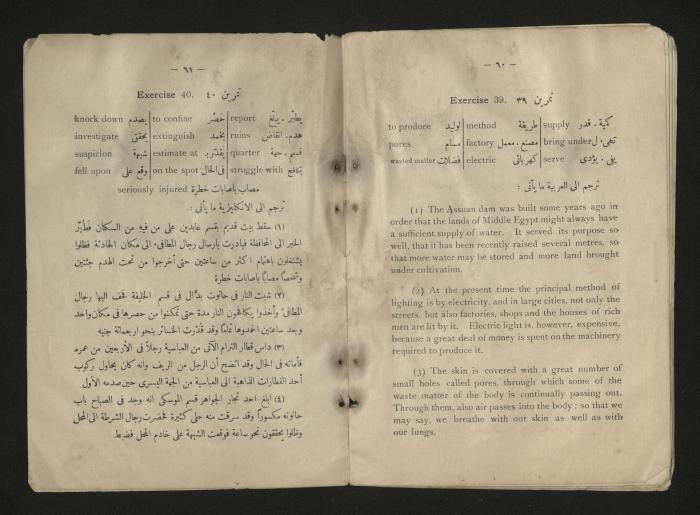 — ٦٠ —
Exercise 39. تمرين ٣٩
to produce توليد method طريقة supply كمية ـ قدر
pores مسام factory مصنع ـ معمل bring under
wasted matter فضلات electric كهربائى serve يفى ـ يؤدى
ترجم الى العربية ما يأتى :
(1) The Assuan dam was built some years ago in
order that the lands of Middle Egypt might always have
a sufficient supply of water. It served its purpose so
well, that it has been recently raised several metres, so
that more water may be stored and more land brought
under cultivation.
(2) At the present time the principal method of
lighting is by electricity, and in large cities, not only the
streets, but also factories, shops and the houses of rich
men are lit by it. Electric light is, however, expensive,
because a great deal of money is spent on the machinery
required to produce it.
(3) The skin is covered with a great number of
small holes called pores, through which some of the
waste matter of the body is continually passing out.
Through them, also air passes into the body ; so that we
may say, we breathe with our skin as well as with
our lungs.
— ٦١ —
Exercise 40. تمرين ٤٠
knock down يصدم to confine حصر report يطيّر ـ يبلّغ
investigate يحقق extinguish يخمد ruins هدم ـ انقاض
suspicion شبهة estimate at يقدّر بـ quarter قسم ـ جهة
fell upon وقع على on the spot فى الحال struggle with يكافح
seriously injured مصاب باصابات خطرة
ترجم الى الانكليزية ما يأتى :
(١) سقط بيت قديم بقسم عابدين على من فيه من السكان فطيّر
الخبر الى المحافظة فبادرت بارسال رجال المطافىء الى مكان الحادثة فظلوا
يشتغلون باهتمام اكثر من ساعتين حتى أخرجوا من تحت الهدم جثتين
وشخصا مصابا باصابات خطرة
(٢) شبت النار فى حانوت بدّال فى قسم الخليفة فخف اليها رجال
المطافئ وأخذوا يكافحون النار مدة حتى تمكنوا من حصرها فى مكان واحد
وبعد ساعتين اخمدوها تماما وقد قدّرت الخسائر بنحو اربعمائة جنيه
(٣) داس قطار الترام الآتى من العباسية رجلاً فى الأربعين من عمره
فأماته فى الحال وقد اتضح أن الرجل من الريف وانه كان يحاول ركوب
أحد القطارات الذاهبة الى العباسية من الجهة اليسرى حين صدمه الأول
(٤) ابلغ احد تجار الجواهر قسم الموسكى انه وجد فى الصباح باب
حانوته مكسوراً وقد سرقت منه حلى كثيرة فحضرت رجال الشرطة الى المحل
وظلوا يحققون نحو ساعة فوقعت الشبهة على خادم المحل فضبط